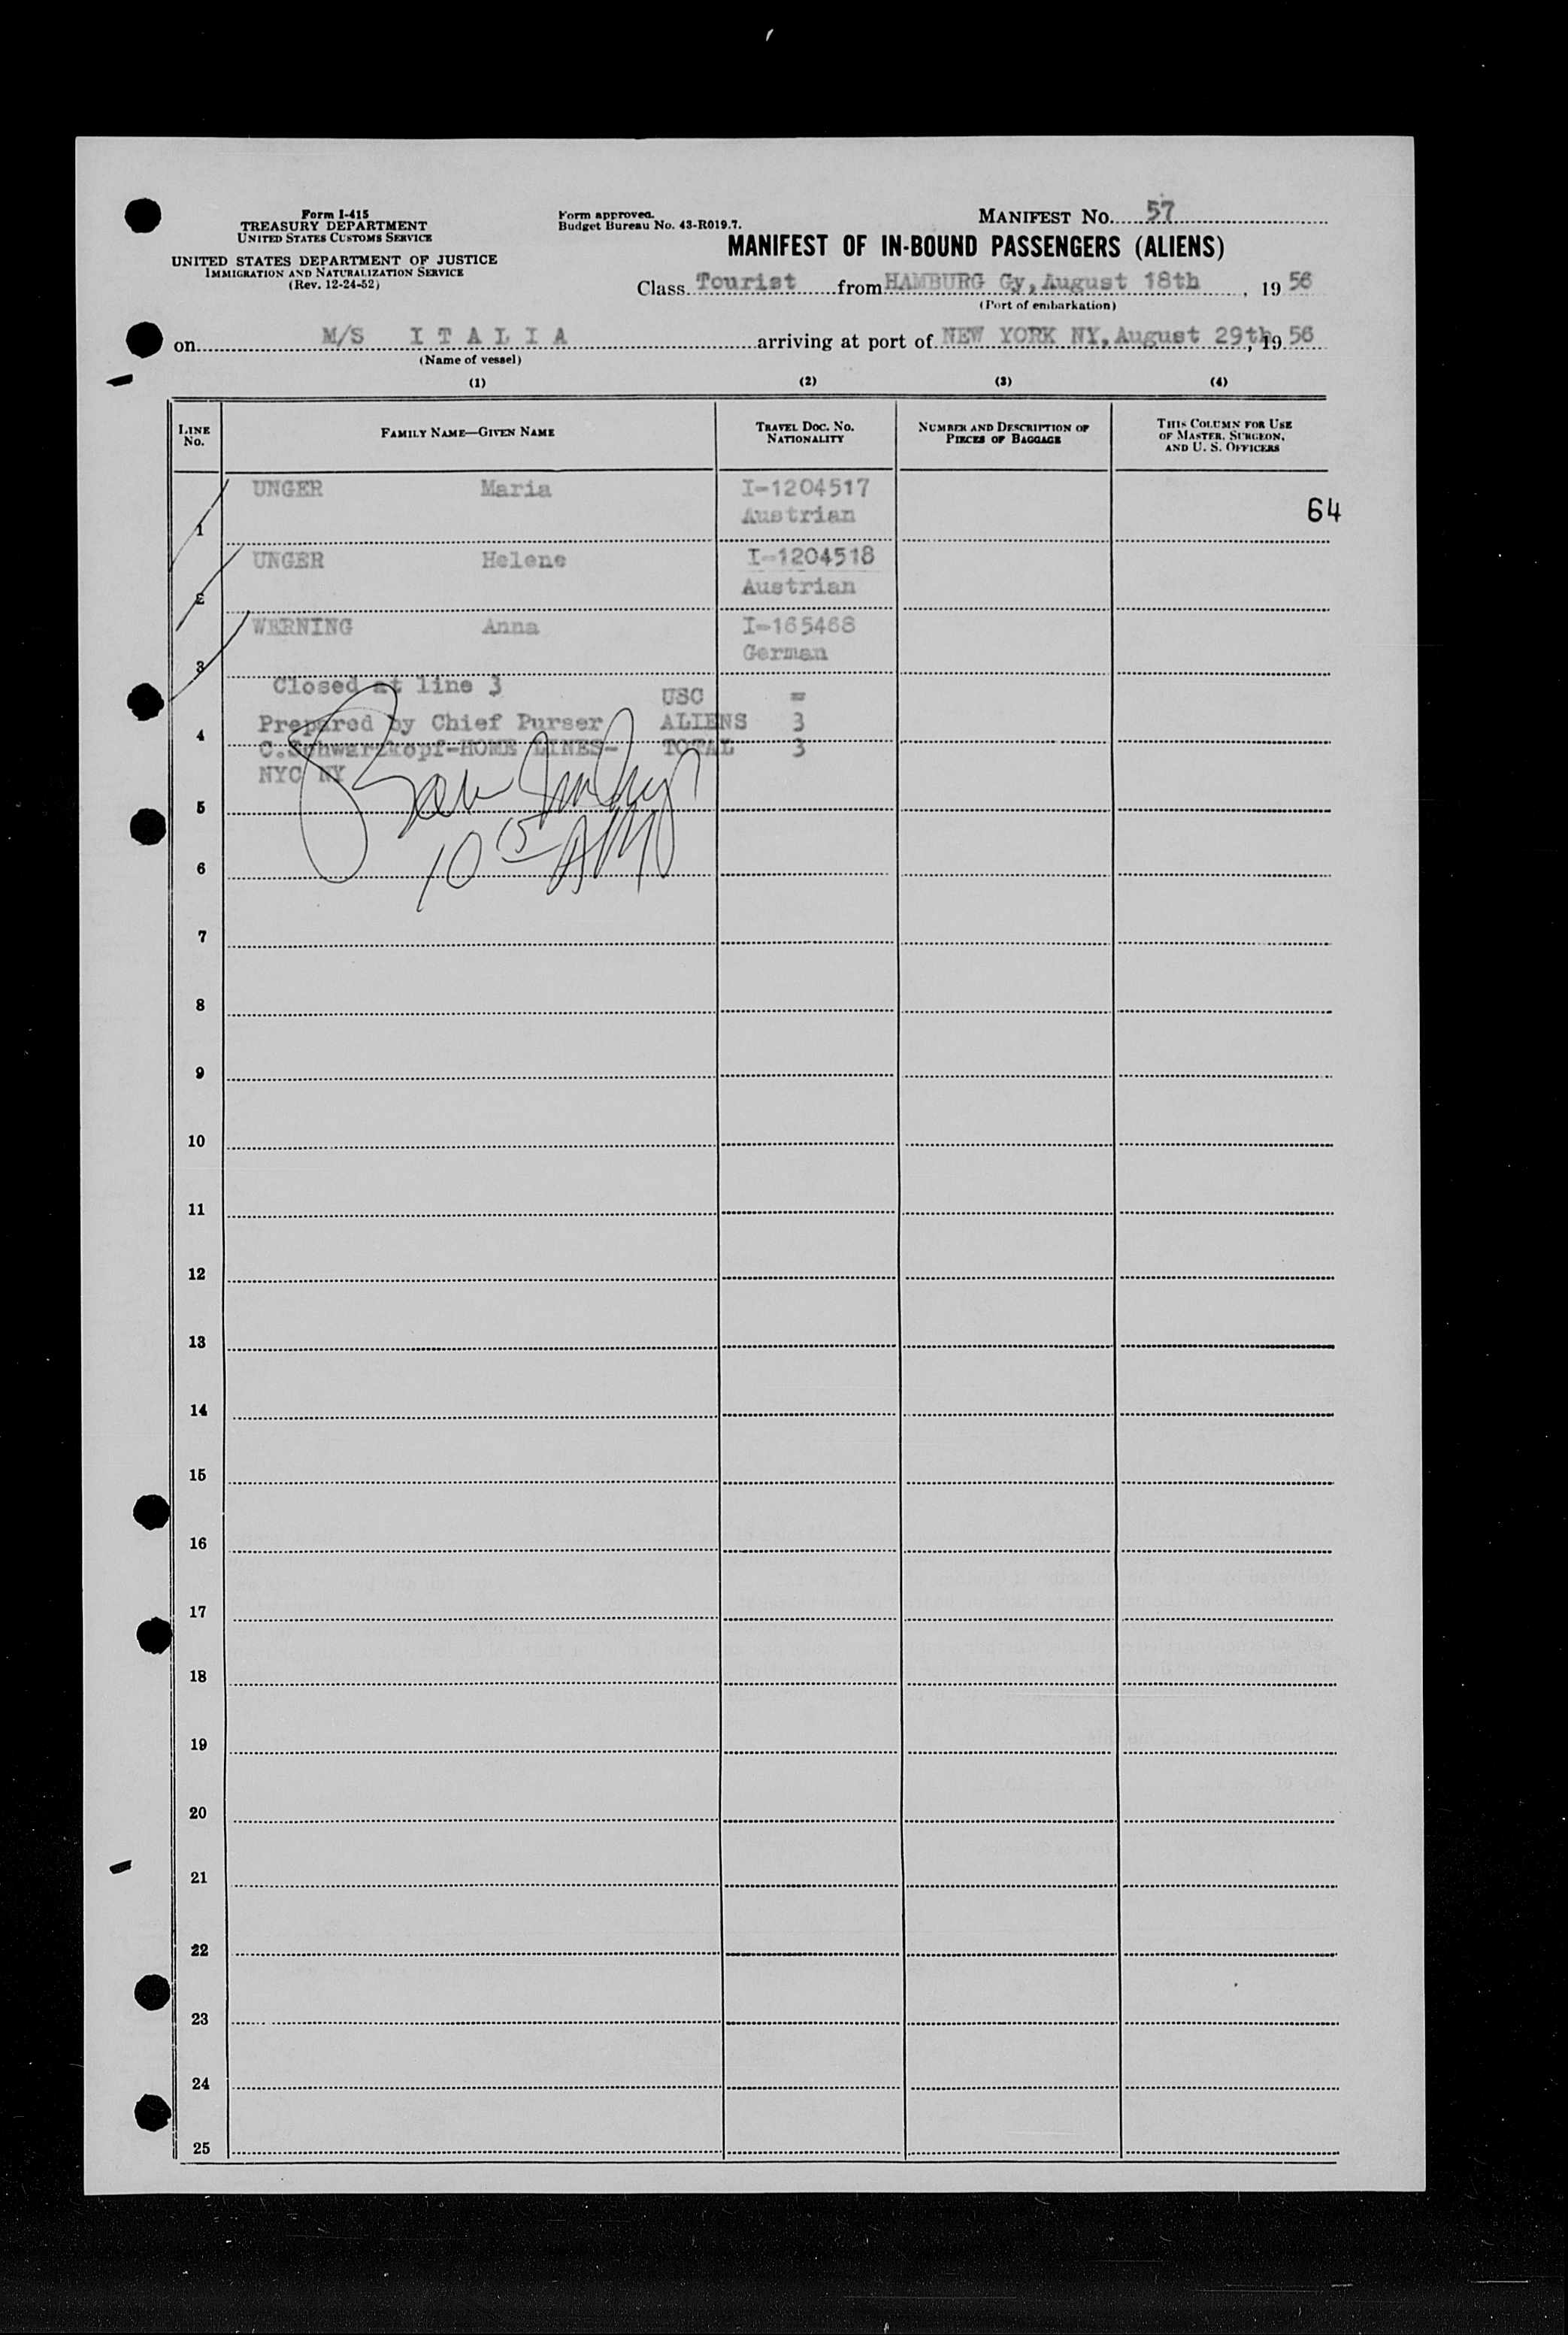 Form I-415
TREASURY DEPARTMENT
UNITED STATES CUSTOMS SERVICE
UNITED STATES DEPARTMENT OF JUSTICE
IMMIGRATION AND NATURALIZATION SERVICE
(Rev. 12-24-52)
Form approved.
Budget Bureau No. 43-R019.7.
MANIFEST No. 57
MANIFEST OF IN-BOUND PASSENGERS (ALIENS)
Class Tourist from HAMBURG Gy, August 18th, 19 56
(Port of embarkation)
on M/S I T A L I A arriving at port of NEW YORK NY, August 29th, 19 56
(Name of vessel)
(1) (2) (3) (4)
LINE No. FAMILY NAME—GIVEN NAME TRAVEL DOC. No. NATIONALITY NUMBER AND DESCRIPTION OF PIECES OF BAGGAGE THIS COLUMN FOR USE OF MASTER, SURGEON, AND U. S. OFFICERS
1 UNGER Maria I-1204517 Austrian 64
2 UNGER Helene I-1204518 Austrian
3 WERNING Anna I-165468 German
Closed at line 3 USC =
4 Prepared by Chief Purser ALIENS 3
C.Schwarzkopf-HOME LINES- TOTAL 3
NYC NY
5
10 15 AM
6
7
8
9
10
11
12
13
14
15
16
17
18
19
20
21
22
23
24
25